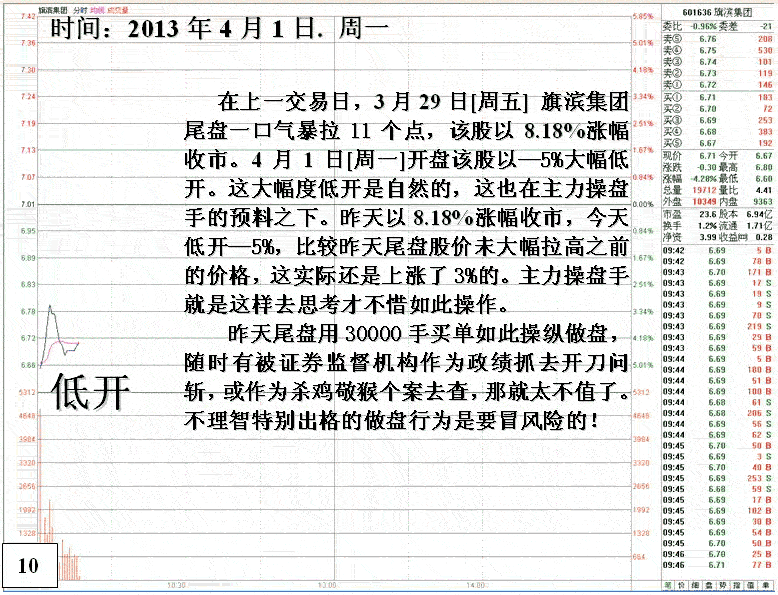 旗滨集团 分时 均线 成交量
时间：2013 年 4 月 1 日. 周一
在上一交易日，3 月 29 日[周五] 旗滨集团
尾盘一口气暴拉 11 个点，该股以 8.18%涨幅
收市。4 月 1 日[周一]开盘该股以—5%大幅低
开。这大幅度低开是自然的，这也在主力操盘
手的预料之下。昨天以 8.18%涨幅收市，今天
低开—5%，比较昨天尾盘股价未大幅拉高之前
的价格，这实际还是上涨了 3%的。主力操盘手
就是这样去思考才不惜如此操作。
昨天尾盘用 30000 手买单如此操纵做盘，
随时有被证券监督机构作为政绩抓去开刀问
斩，或作为杀鸡敬猴个案去查，那就太不值了。
不理智特别出格的做盘行为是要冒风险的！
低开
10
7.42
7.36
7.30
7.24
7.19
7.13
7.07
7.01
6.95
6.89
6.83
6.78
6.72
6.66
5312
4648
3984
3320
2656
1992
1328
5.85%
5.01%
4.18%
3.34%
2.51%
1.67%
0.84%
0.00%
0.84%
1.67%
2.51%
3.34%
4.18%
5.01%
5312
4648
3984
3320
2656
1992
1328
664
10:30
13:00
14:00
601636 旗滨集团
委比 -0.96% 委差 -21
卖⑤ 6.76 208
卖④ 6.75 530
卖③ 6.74 101
卖② 6.73 119
卖① 6.72 146
买① 6.71 183
买② 6.70 72
买③ 6.69 253
买④ 6.68 383
买⑤ 6.67 192
现价 6.71 今开 6.67
涨跌 -0.30 最高 6.80
涨幅 -4.28% 最低 6.60
总量 19712 量比 4.41
外盘 10349 内盘 9363
市盈 23.6 股本 6.94亿
换手 1.2% 流通 1.71亿
净资 3.99 收益㈣ 0.28
09:42 6.69 5 B
09:42 6.69 78 B
09:43 6.70 171 B
09:43 6.69 17 S
09:43 6.69 19 S
09:43 6.69 9 S
09:43 6.69 70 S
09:43 6.69 219 S
09:43 6.69 29 B
09:43 6.69 59 B
09:44 6.69 5 B
09:44 6.69 100 B
09:44 6.69 51 B
09:44 6.69 100 B
09:44 6.68 61 S
09:44 6.68 206 S
09:44 6.69 56 S
09:44 6.69 62 S
09:45 6.70 50 B
09:45 6.69 3 S
09:45 6.70 40 B
09:45 6.69 253 S
09:45 6.68 59 S
09:45 6.69 17 B
09:45 6.69 102 B
09:45 6.69 30 B
09:45 6.69 54 B
09:45 6.70 50 B
09:46 6.70 25 B
09:46 6.71 77 B
笔 价 细 盘 势 指 值 单